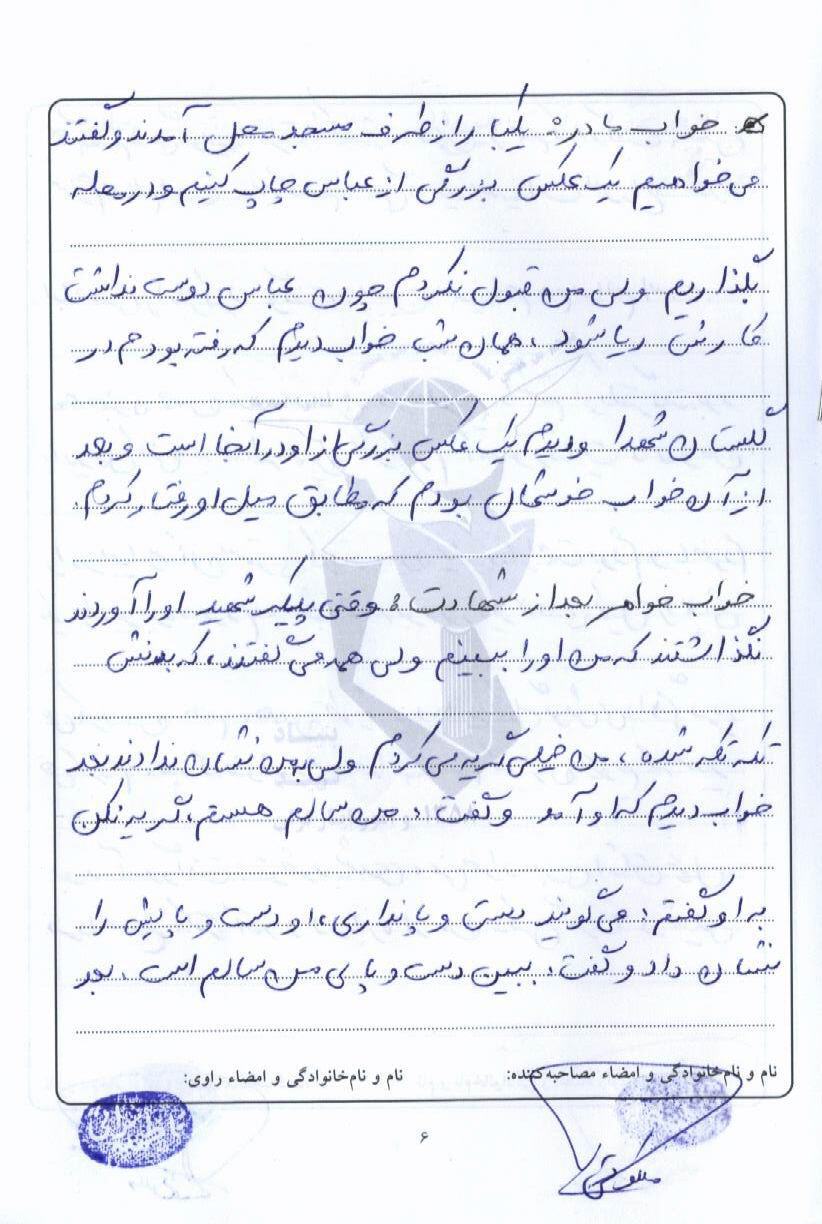 خواب مادر: یکبار از طرف مسجد محل آمدند و گفتند
می‌خواهیم یک عکس بزرگی از عباس چاپ کنیم و در محله
بگذاریم ولی من قبول نکردم چون عباس دوست نداشت
کارش ریا شود، همان شب خواب دیدم که رفته بودم در
گلستان شهدا و دیدم یک عکس بزرگی از او در آنجا است و بعد
از آن خواب خوشحال بودم که مطابق میل او رفتار کردم.
خواب خواهر بعد از شهادت: وقتی پیکر شهید او را آوردند
نگذاشتند که من او را ببینم ولی همه می‌گفتند، که بدنش
تکه تکه شده، من خیلی گریه می‌کردم ولی به من نشان ندادند بعد
خواب دیدم که او آمد و گفت: من سالم هستم، گریه نکن
به او گفتم: می‌گویند دست و پا نداری، او دست و پایش را
نشان داد و گفت: ببین دست و پای من سالم است. بعد
نام و نام‌خانوادگی و امضاء مصاحبه‌کننده:
نام و نام‌خانوادگی و امضاء راوی:
۶